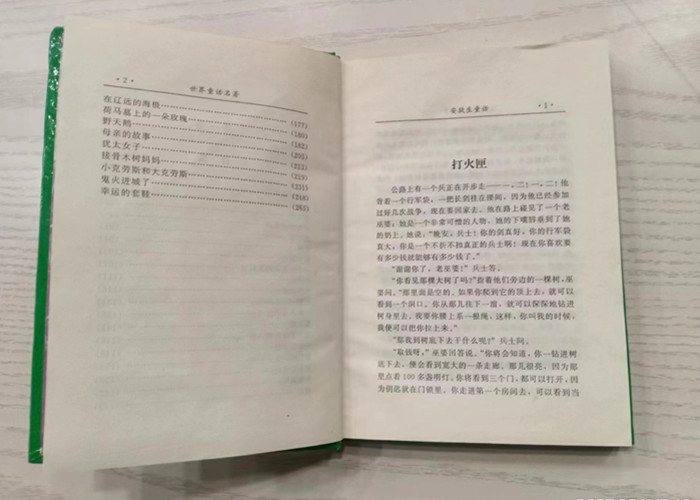 · 2 · 世界童话名著
在辽远的海极………(177)
荷马墓上的一朵玫瑰………(180)
野天鹅………(182)
母亲的故事………(205)
犹太女子………(213)
接骨木树妈妈………(219)
小克劳斯和大克劳斯………(231)
鬼火进城了………(246)
幸运的套鞋………(265)
安徒生童话 1
打火匣
公路上有一个兵正在开步走——一,二!一,二!他
背着一个行军袋,一把长剑挂在腰间,因为他已经参加
过好几次战争,现在要回家去。他在路上碰见了一个老
巫婆;她是一个非常可憎的人物,她的下嘴唇垂到了她
的奶上。她说:“晚安,兵士!你的剑真好,你的行军袋
真大,你是一个不折不扣真正的兵士啊!现在你喜欢要
有多少钱就能够有多少钱了。”
“谢谢你了,老巫婆!”兵士答。
“你看见那棵大树了吗?”指着他们旁边的一棵树,巫
婆问。“那里面是空的。如果你爬到它的顶上去,就可以
看到一个洞口。你从那儿往下一溜,就可以深深地钻进
树身里去。我要你腰上系一根绳,这样,你叫我的时候,
我便可以把你拉上来。”
“那我到树底下去干什么呢?”兵士问。
“取钱呀,”巫婆回答说。“你将会知道,你一钻进树
底下去,便会看到宽大的一条走廊。那儿很亮,因为那
里点着100多盏明灯。你将看到三个门,都可以打开,因
为钥匙就在门锁里。你走进第一个房间去,可以看到当